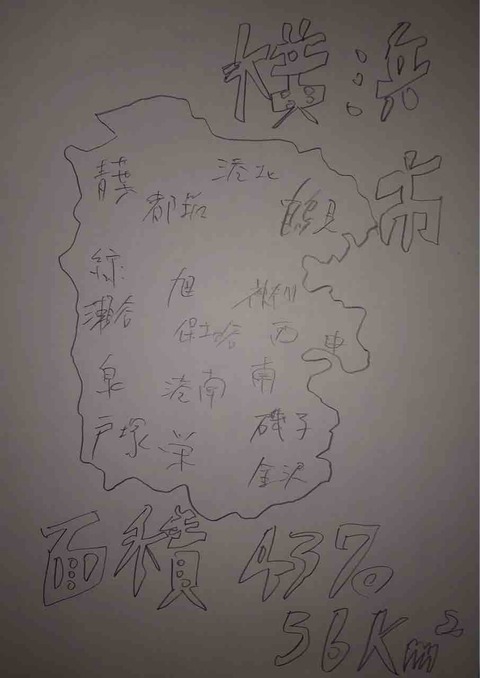 横浜市
青葉
港北
都筑
鶴見
緑
旭
神奈川
瀬谷
保土ケ谷
西
中
泉
港南
南
戸塚
栄
磯子
金沢
面積 437。
56Km²